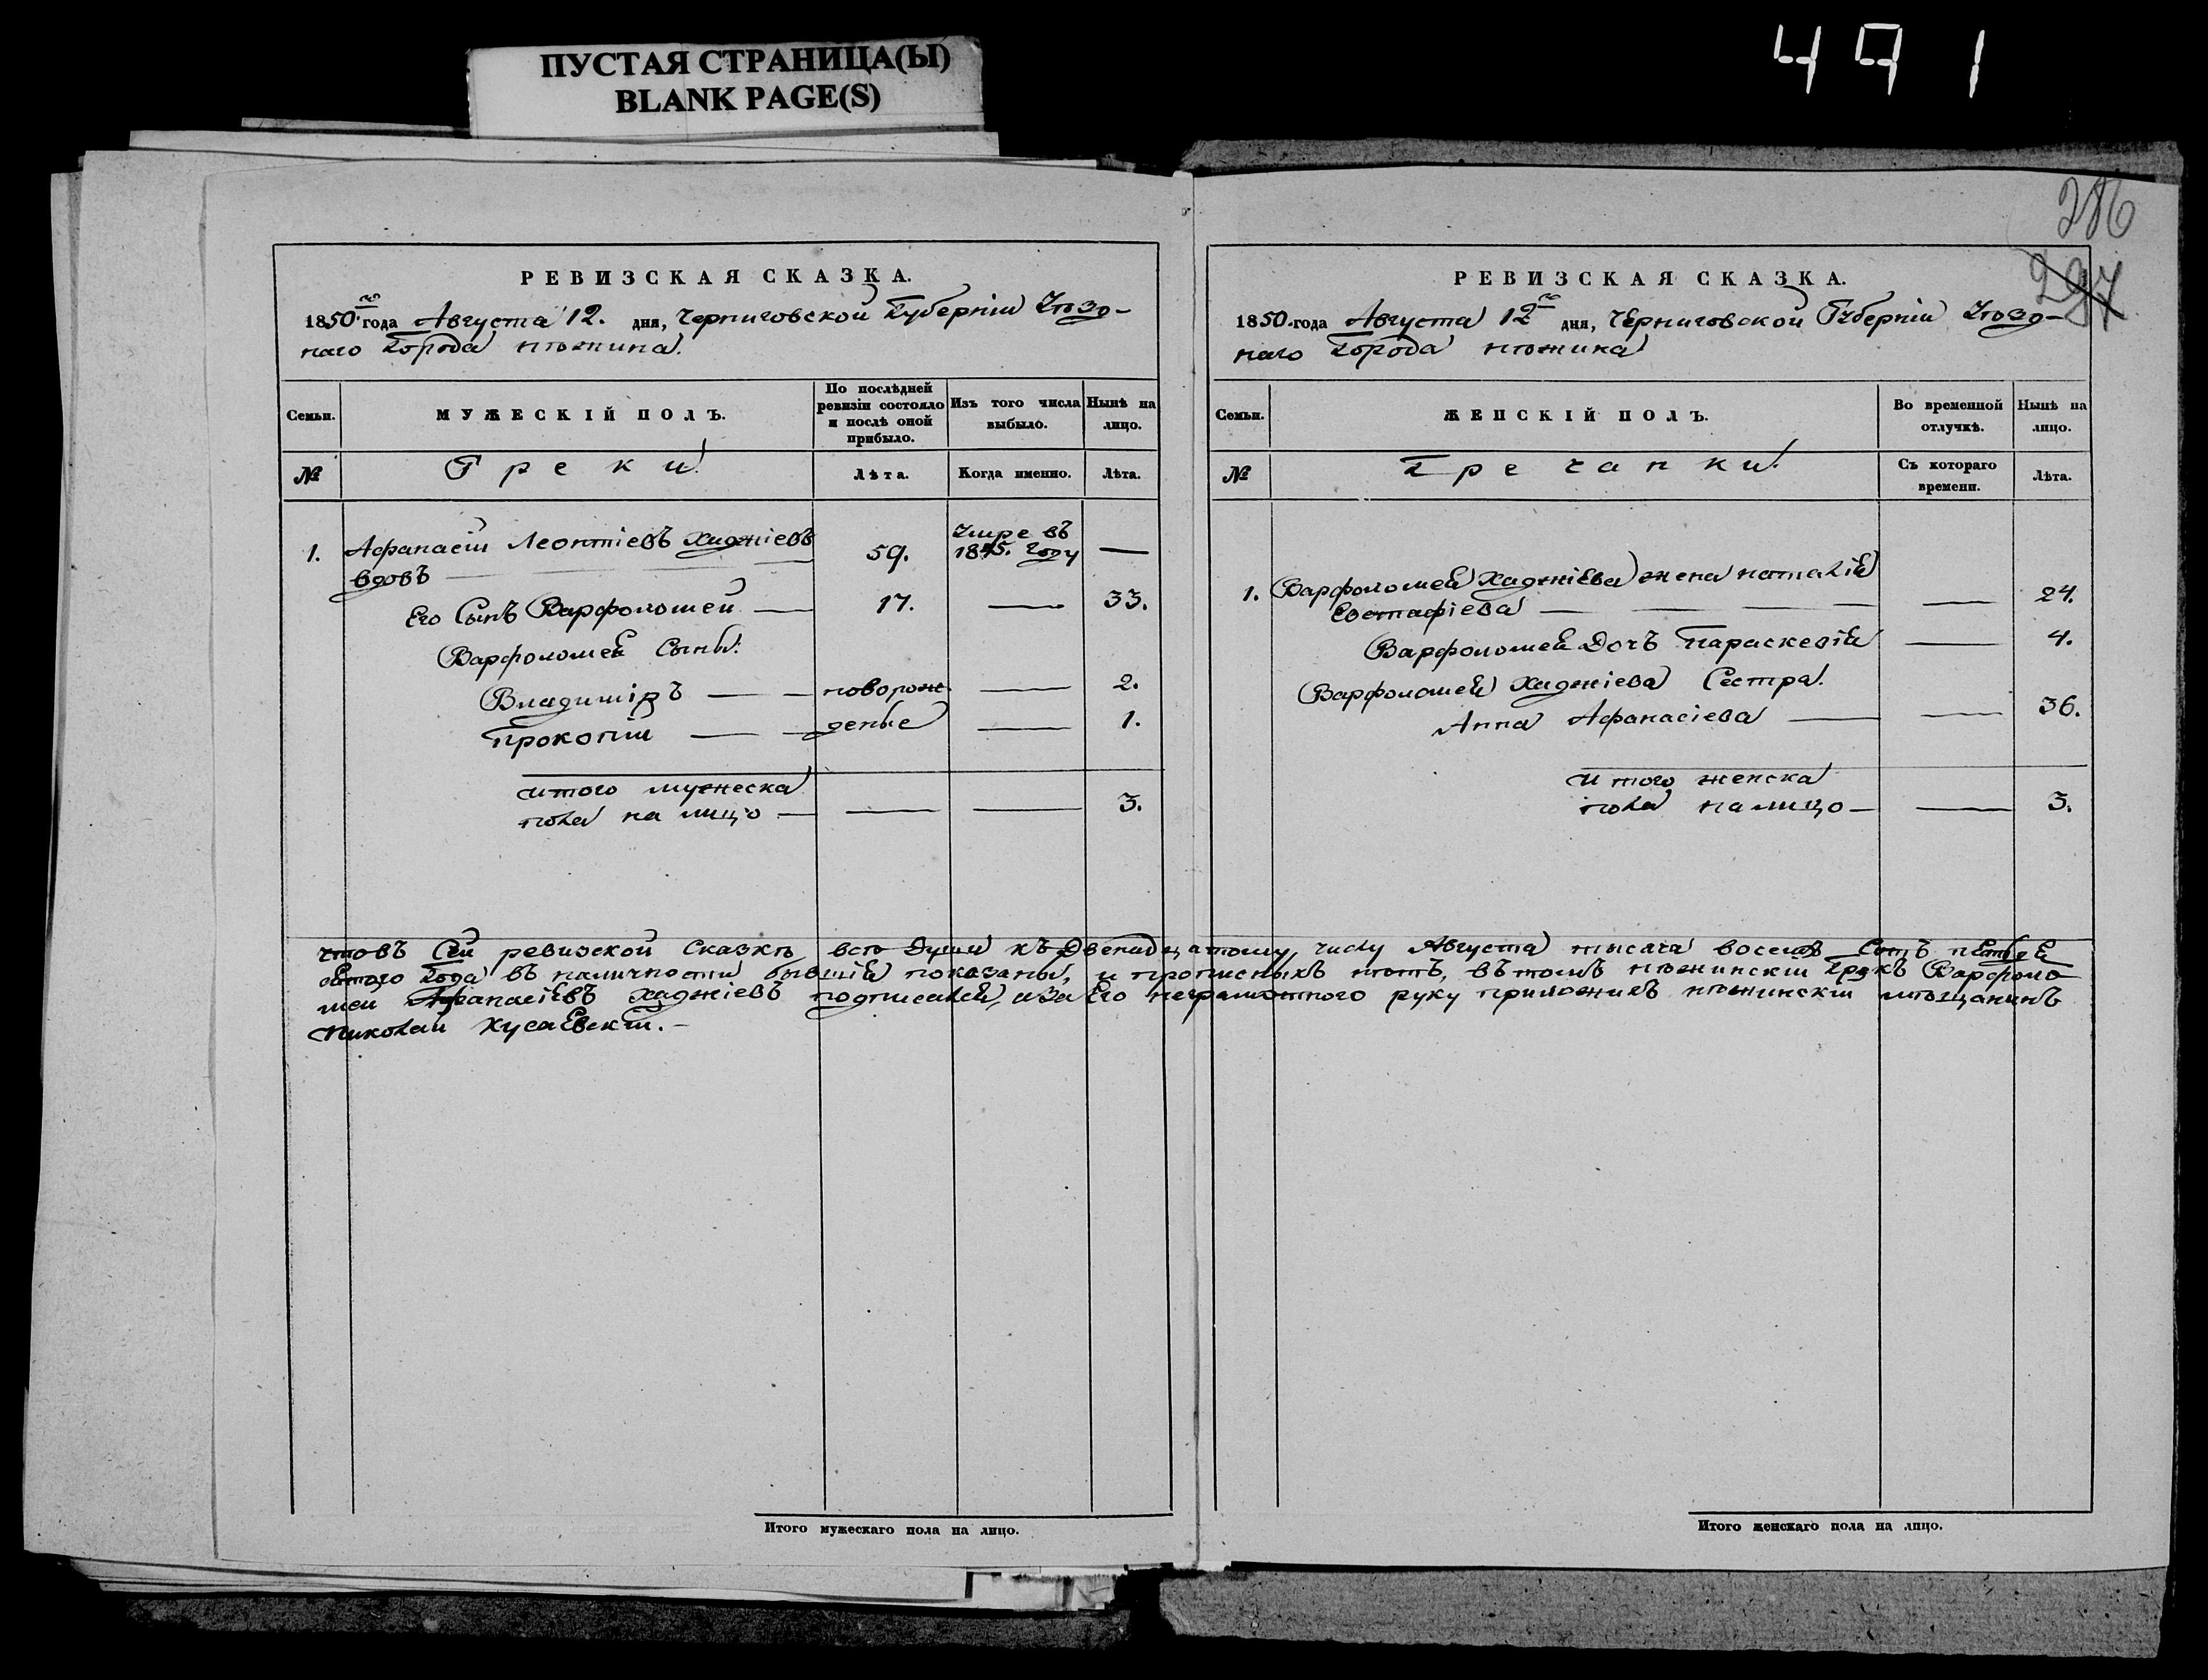 ПУСТАЯ СТРАНИЦА(Ы)
BLANK PAGE(S)
491
286
297
РЕВИЗСКАЯ СКАЗКА.
1850.го года Августа 12. дня, Черниговской Губерніи Уѣзд-
наго Города Нѣжина.
Семьи.
МУЖЕСКІЙ ПОЛЪ.
По послѣдней ревизіи состояло и послѣ оной прибыло.
Изъ того числа выбыло.
Нынѣ на лицо.
№
Греки
Лѣта.
Когда именно.
Лѣта.
1. Афанасій Леонтіевъ Хаджіевъ 59. Умре въ 1845. Году —
вдовъ
Его Сынъ Варфоломей — 17. — 33.
Варфоломея Сыны:
Владиміръ — новорож — 2.
Прокопій — деные — 1.
Итого мужеска
пола на лицо — — — 3.
РЕВИЗСКАЯ СКАЗКА.
1850. года Августа 12го дня, Черниговской Губерніи Уѣзд-
наго Города Нѣжина
Семьи.
ЖЕНСКІЙ ПОЛЪ.
Во временной отлучкѣ.
Нынѣ на лицо.
№
Гречанки.
Съ котораго времени.
Лѣта.
1. Варфоломея Хаджіева жена Наталія
Евстафіева — — 24.
Варфоломея Дочъ Параскевія — 4.
Варфоломея Хаджіева Сестра.
Анна Афанасіева — — 36.
Итого женска
пола на лицо — — 3.
что въ Сей ревизской Сказкѣ всѣ Души къ Двенадцатому числу Августа тысяча восемъ Сотъ пѣтьде
сятого Года въ наличности бывшія показаны, и прописныхъ нѣтъ, въ томъ нѣжинскій Грекъ Варфоло
мей Афанасіевъ Хаджіевъ подписался, а за Его неграмотного руку приложилъ нѣжинскій мѣщанинъ
Николай Хусаевскій. —
Итого мужескаго пола на лицо.
Итого женскаго пола на лицо.